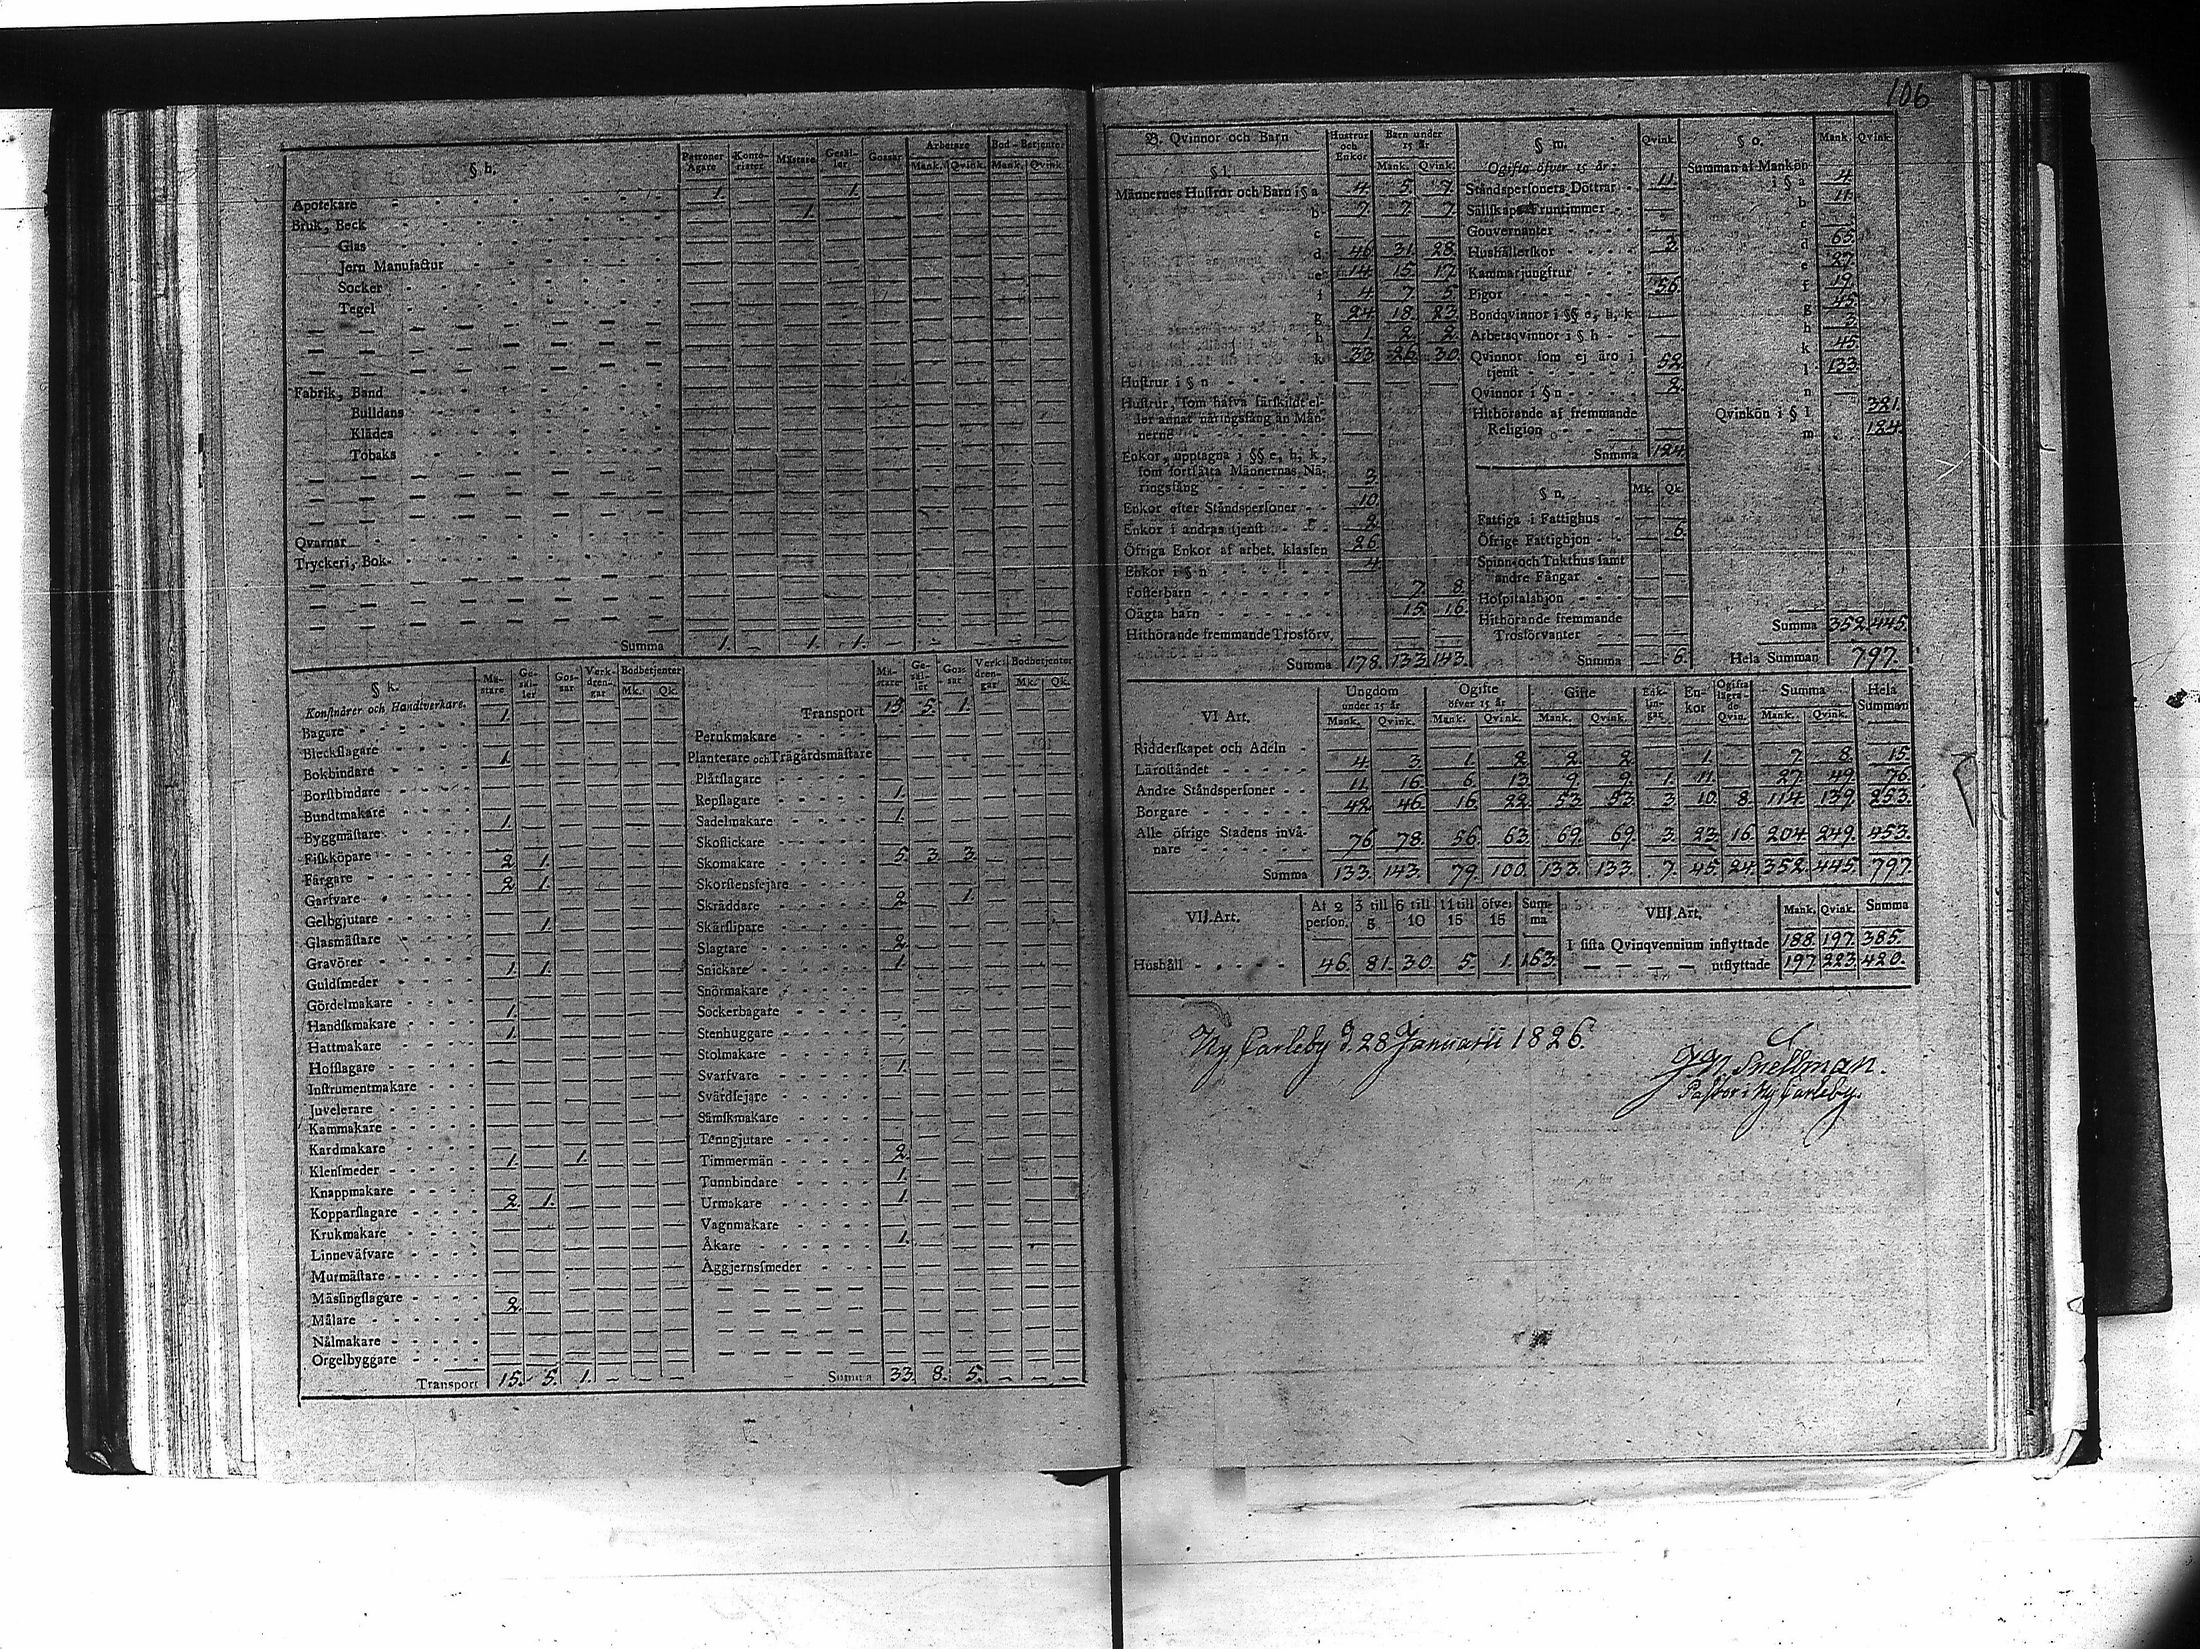 106
§ h.
Patroner Ägare
Konto-rister
Mästare
Gesäl-ler
Gossar
Arbetare
Mank. Qvink.
Bod-Betjenter
Mank. Qvink.
Apotekare 1. 1.
Bruk, Beck 1.
Glas
Jern Manufactur
Socker
Tegel
Fabrik, Band
Bulldans
Klädes
Tobaks
Qvarnar
Tryckeri, Bok-
Summa 1. — 1. 1. — — — — —
§ k.
Konstnärer och Handtverkare.
Mä-stare
Ge-säl-ler
Gos-sar
Verk-dren-gar
Bodbetjenter
Mk. Qk.
Bagare 1.
Bleckslagare
Bokbindare 1.
Borstbindare
Bundtmakare
Byggmästare 1.
Fiskköpare
Färgare 2. 1.
Garfvare 2. 1.
Gelbgjutare
Glasmästare 1.
Gravörer
Guldsmeder 1. 1.
Gördelmakare
Handskmakare 1.
Hattmakare 1.
Hofslagare
Instrumentmakare
Juvelerare
Kammakare
Kardmakare
Klensmeder 1. 1.
Knappmakare
Kopparslagare 2. 1.
Krukmakare
Linneväfvare
Murmästare
Mässingslagare
Målare 2.
Nålmakare
Orgelbyggare
Transport 15. 5. 1. — — —
Mä-stare
Ge-säl-ler
Gos-sar
Verk-dren-gar
Bodbetjenter
Mk. Qk.
Transport 15. 5. 1.
Perukmakare
Planterare och Trägårdsmästare
Plåtslagare
Repslagare 1.
Sadelmakare 1.
Skoflickare
Skomakare 5. 3. 3.
Skorstensfejare
Skräddare 2. 1.
Skärslipare
Slagtare 2.
Snickare 1.
Snörmakare
Sockerbagare
Stenhuggare
Stolmakare
Svarfvare 1.
Svärdfejare
Sämskmakare
Tenngjutare
Timmermän 2.
Tunnbindare 1.
Urmakare 1.
Vagnmakare
Åkare 1.
Äggjernssmeder
Summa 33. 8. 5. — — —
B. Qvinnor och Barn
Hustrur och Enkor
Barn under 15 år
Mank. Qvink.
§ l.
Männernes Hustrur och Barn i § a 4. 5. 7.
b 7. 7. 7.
c
d 46. 31. 28.
e 14. 15. 17.
f 4. 7. 5.
g 24. 18. 23.
h 1. 2. 2.
k 33. 26. 30.
Hustrur i § n
Hustrur, som hafva särskildt el-
ler annat näringsfång än Män-
nerne
Enkor, upptagna i §§ e, h, k,
som fortsätta Männernas Nä-
ringsfång 3.
Enkor efter Ståndspersoner 10.
Enkor i andras tjenst 2.
Öfriga Enkor af arbet. klassen 26.
Enkor i § n 4.
Fosterbarn 7. 8.
Oägta barn 15. 16.
Hithörande fremmande Trosförv.
Summa 178. 133. 143.
§ m. Qvink.
Ogifta öfver 15 år:
Ståndspersoners Döttrar 11.
Sällskaps Fruntimmer
Gouvernanter
Hushållerskor 3.
Kammarjungfrur
Pigor 56.
Bondqvinnor i §§ e, h, k
Arbetsqvinnor i § h
Qvinnor som ej äro i
tjenst 52.
Qvinnor i § n 2.
Hithörande af fremmande
Religion
Summa 124.
§ n. Mk. Qk.
Fattiga i Fattighus
Öfrige Fattighjon 6.
Spinn- och Tukthus samt
andre Fångar
Hospitalshjon
Hithörande fremmande
Trosförvanter
Summa — 6.
§ o. Mank. Qvink.
Summan af Mankön
i § a 4.
b 11.
c
d 65.
e 27.
f 19.
g 45.
h 3.
k 45.
l 133.
n
Qvinkön i § l 321.
m 124.
Summa 352. 445.
Hela Summan 797.
VI Art.
Ungdom under 15 år
Mank. Qvink.
Ogifte öfver 15 år
Mank. Qvink.
Gifte
Mank. Qvink.
Enk-lin-gar
En-kor
Ogifta lägra-de Qvin.
Summa
Mank. Qvink.
Hela Summan
Ridderskapet och Adeln
Läroståndet 4. 3. 1. 2. 2. 2. 1. 7. 8. 15.
Andre Ståndspersoner 11. 16. 6. 13. 9. 9. 1. 11. 27. 49. 76.
Borgare 42. 46. 16. 22. 53. 53. 3. 10. 8. 114. 139. 253.
Alle öfrige Stadens invå-
nare 76. 78. 56. 63. 69. 69. 3. 23. 16. 204. 249. 453.
Summa 133. 143. 79. 100. 133. 133. 7. 45. 24. 352. 445. 797.
VII. Art.
Af 2 person.
3 till 5
6 till 10
11 till 15
öfver 15
Sum-ma
Hushåll 46. 81. 30. 5. 1. 163.
VIII. Art. Mank. Qvink. Summa
I sista Qvinqvennium inflyttade 188. 197. 385.
— — — — utflyttade 197. 223. 420.
Ny Carleby d. 28 Januarii 1826.
Snellman.
Pastor i Ny Carleby.